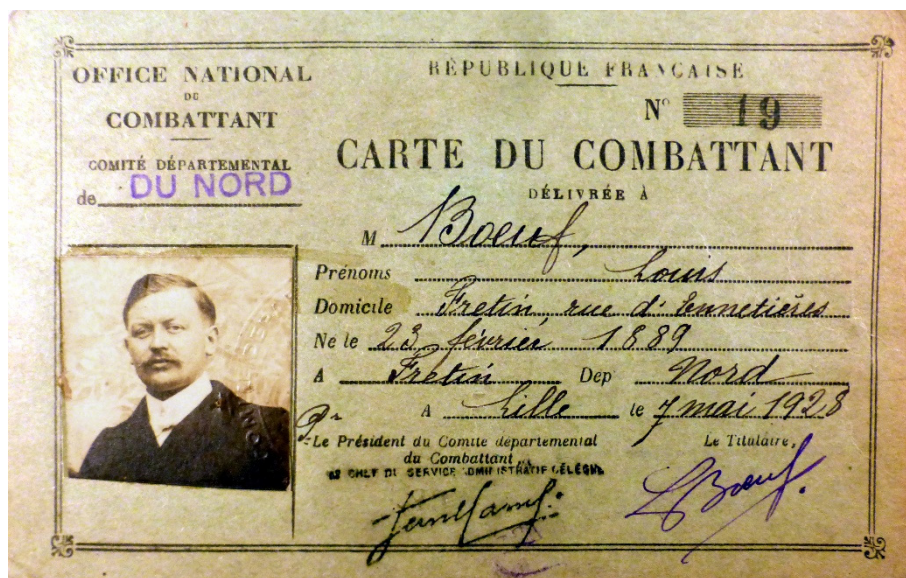 OFFICE NATIONAL
DU
COMBATTANT
COMITÉ DÉPARTEMENTAL
de DU NORD
RÉPUBLIQUE FRANÇAISE
N° 19
CARTE DU COMBATTANT
DÉLIVRÉE À
M Boeuf,
Prénoms Louis
Domicile Fretin, rue d'Ennetières
Né le 23 février 1889
A Fretin Dep Nord
A Lille le 7 mai 1928
Pr
Le Président du Comité départemental
du Combattant
LE CHEF DU SERVICE ADMINISTRATIF DÉLÉGUÉ
Le Titulaire,
L Boeuf.